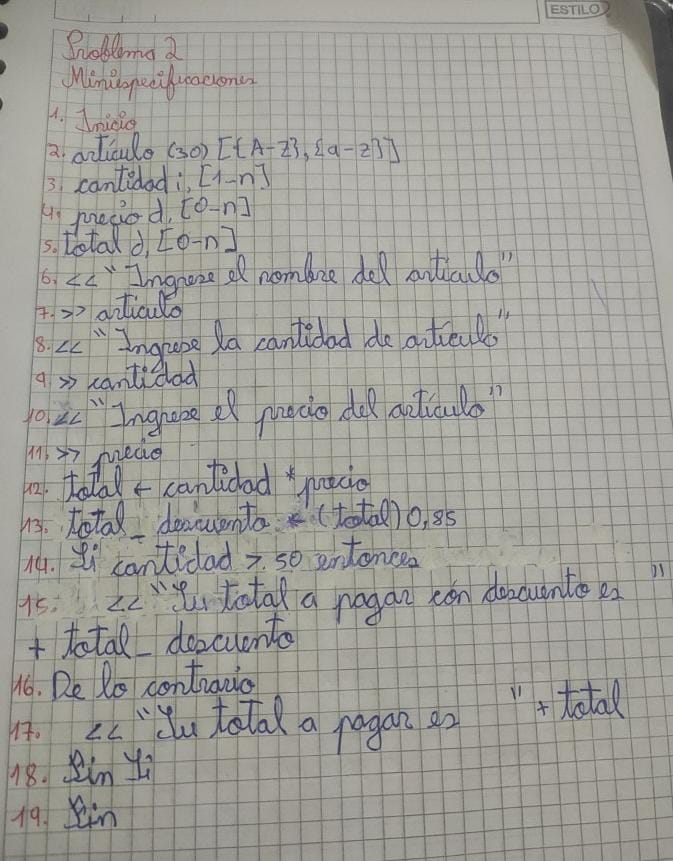 ESTILO
Problema 2
Miniespecificaciones
1. Inicio
2. artículo (30) [{A-Z}, {a-z}]
3. cantidad i, [1-n]
4. precio d, [0-n]
5. total d, [0-n]
6. << "Ingrese el nombre del artículo"
7. >> artículo
8. << "Ingrese la cantidad de artículo"
9. >> cantidad
10. << "Ingrese el precio del artículo"
11. >> precio
12. total ← cantidad * precio
13. total_descuento ← (total) 0,85
14. Si cantidad > 50 entonces
15. << "Su total a pagar con descuento es "
+ total_descuento
16. De lo contrario
17. << "Su total a pagar es " + total
18. Fin Si
19. Fin